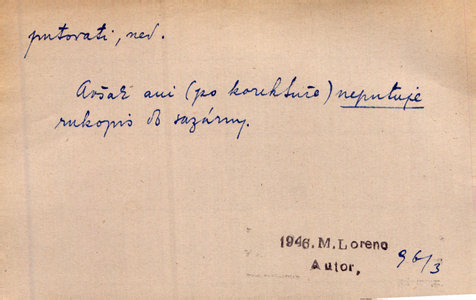 putovati, ned.
Avšak ani (po korektuře) neputuje
rukopis do sazárny.
1946. M. Loreno
Autor,
96/3